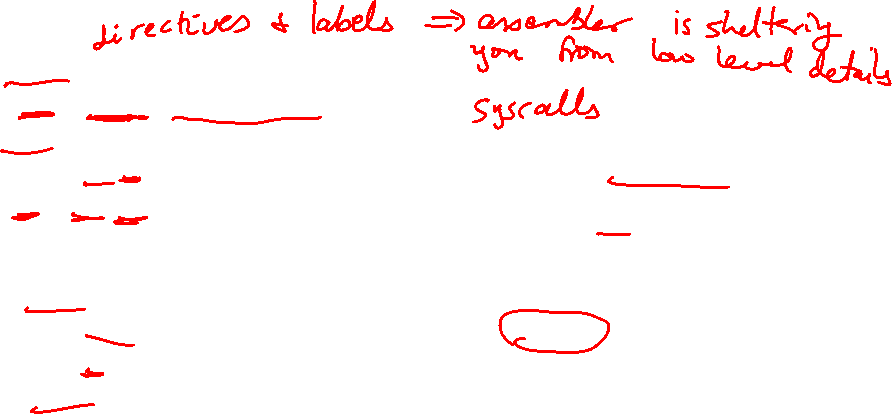 directives & labels ⇒ assembler is sheltering
you from low level details
syscalls